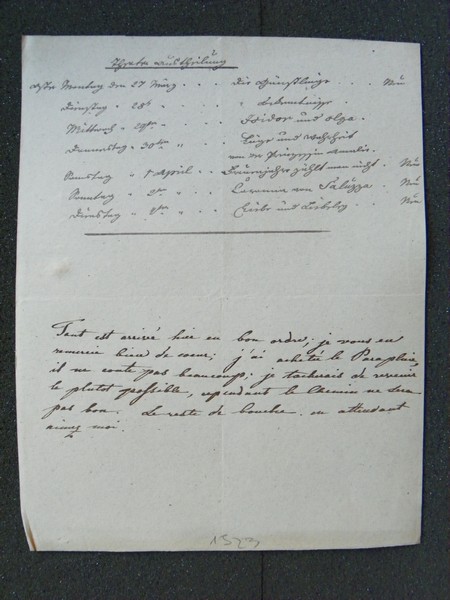 Theater austheilung
Montag den 27 März . . . Die Günstlinge . . Neu
Dienstag " 28t . . .
Mittwoch " 29ten . . . Isidor und Olga .
Donnerstag " 30ten " . . Lüge und Wahrheit
von der Prinzessin Amalie.
Sonnstag " 1 April . . . zählt man nicht . Neu
Sonntag " 2ten " . . . von Saluzza . Neu
Dienstag " . . . Liebe und . . Neu
Tout est arrivé hier en bon ordre, je vous en
remercie bien de coeur; j'ai acheté le Paraplui,
il ne conte pas beaucoup; je tacherais de revenir
le plutot possible, cependant le Chemin ne sera
pas bon. Le reste de bouche. en attendant
aimez moi.